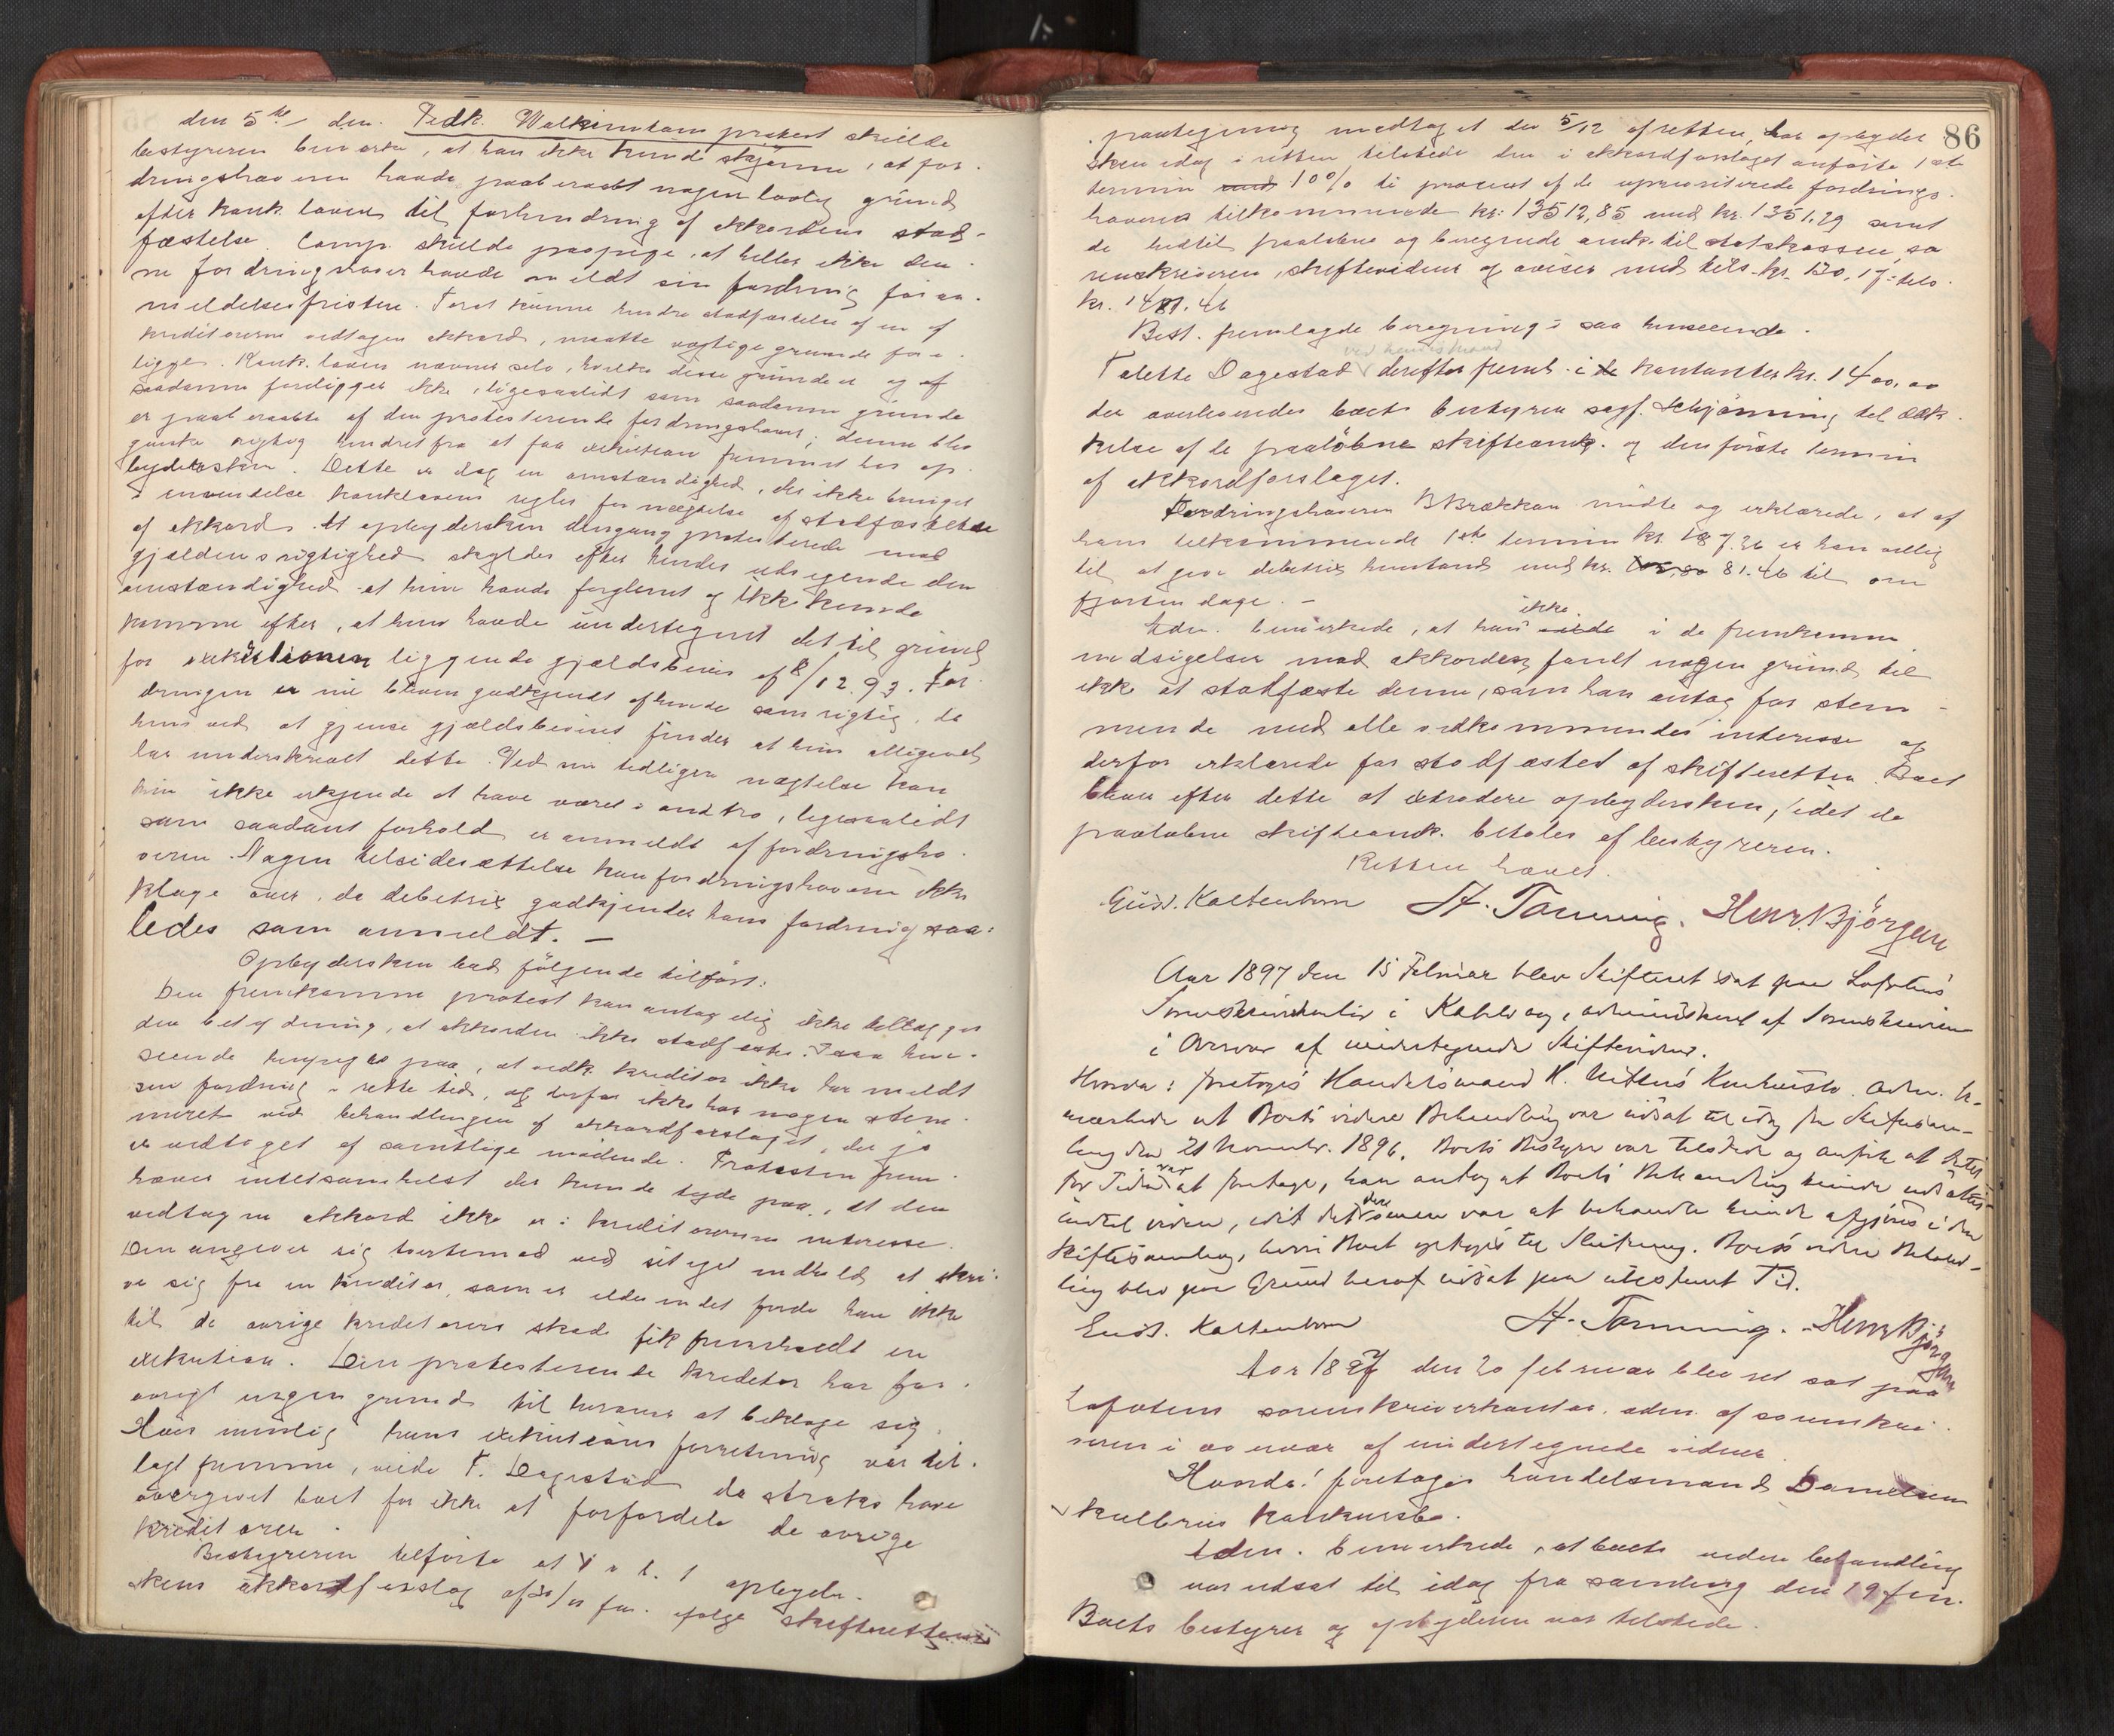 den 5te des. Fedk. Walkinstans protest skulde
bestyreren bemærke, at han ikke kunde skjønne, at for-
dringshaveren havde paaberaabt nogen lovlig grund
efter konk. loven til forhindring af akkordens stad-
fæstelse. Comp. skulde paapege, at heller ikke den-
ne fordringshaver havde meldt sin fordring før an-
meldelsesfristen. Forat kunne hindre stadfæstelse af en af
kreditorerne vedtagen akkord, maatte vægtige grunde fore-
ligge. Konk. loven nævner selv, hvilke disse grunde er og af
saadanne foreligger ikke, ligesaalidt som saadanne grunde
er paaberaabte af den protesterende fordringshaver; denne blev
ganske rigtig hindret fra at faa exekution fremmet hos op-
bydersken. Dette er dog en omstændighed, der ikke bringer
i anvendelse konklovens regler for nægtelse af stadfæstelse
af akkord. At opbydersken dengang protesterede mod
gjældens rigtighed skyldes efter hendes udsigende den
omstændighed at hun havde forglemt og ikke kunde
komme efter, at hun havde undertegnet det til grund
for exekutionen liggende gjældsbevis af 8/12.93. For-
dringen er nu bleven godkjendt af hende som rigtig, da
hun ved at gjense gjældsbeviset finder at hun alligevel
har underskrevet dette. Ved sin tidligere nægtelse kan
hun ikke erkjende at have været i ond tro, ligesaalidt
som saadant forhold er anmeldt af fordringsha-
veren. Nogen tilsidesættelse kan fordringshaveren ikke
klage over, da debetrix godkjender hans fordring saa-
ledes som anmeldt. —
Opbydersken bad følgende tilført:
Den fremkomne protest kan antagelig ikke tillægges
den betydning, at akkorden ikke stadfæstes. I saa hen-
seende henpeges paa, at vedk. kreditor ikke har meldt
sin fordring i rette tid, og derfor ikke har nogen stem-
meret ved behandlingen af akkordforslaget, der jo
er vedtaget af samtlige mødende. Protesten frem-
hæver intetsomhelst der kunde tyde paa, at den
vedtagne akkord ikke er i kreditorernes interesse.
Den angiver sig tvertemod ved sit eget indhold at skri-
ve sig fra en kreditor, som er ilde indet fordi han ikke
til de øvrige kreditorers skade fik fremtvedt en
exekution. Den protesterende kreditor har for-
øvrigt ingen grund til herover at beklage sig.
Hvis nemlig hans exekutions forretning var til-
ladt fremme, vilde T. Dagestad da straks have
overgivet boet for ikke at forfordele de øvrige
kreditorer.
Bestyreren tilførte at opbyder-
skens akkordforslag af 30/11 for. ifølge skifterettens
86
paategning modtaget den 5/12 af retten, har opbyder
sken idag i retten tilstede den i akkordforslaget anførte 1ste
termin med 10% ti procent af de uprioriterede fordrings-
havere tilkommende kr: 13512,85 med kr. 1351.29 samt
de hertil paaløbne og beregnede omk. til statskassen, so
renskriveren, skiftevidner og aviser med tils. kr. 130,17 = tils.
kr. 1481.46
Best. fremlagde beregning i saa henseende.
ved hendes mand
Tolette Dagestad derefter freml. i de kontanter kr. 1400,00
der overleveredes boets bestyrer sagf. Schjønning til dæk-
kelse af de paaløbne skifteomk. og den første termin
af akkordforslaget.
Fordringshaveren B Brækkan mødte og erklærede, at af
hans tilkommende 1ste termin kr. 187.26 er han villig
til at give debetrix henstand med kr. 81.46 til om
fjorten dage. —
Adm. bemærkede, at han ikke i de fremkomne
indsigelser mod akkorden fandt nogen grund til
ikke at stadfæste denne, som han antog for stem-
mende med alle vedkommendes interesse og
derfor erklærede for stadfæstet af skifteretten. Boet
bliver efter dette at extradere opbydersken, idet de
paaløbne skifteomk. betales af bestyreren.
Retten hævet.
Gust. Kaltenborn H. Tønning. Henr. Bjørgen
Aar 1897 den 15 Februar blev Skifteret sat paa Lofotens
Sorenskriverkontor i Kabelvaag, administreret af Sorenskriveren
i Overvær af undertegnede Skiftevidner.
Hvorda: foretoges Handelsmand H. Konkursbo. Adm. be-
mærkede at Boets videre Behandling var udsat til idag fra Skiftesam-
ling den 21 Novembr. 1896. Boets Bestyrer var tilstede og anførte at Intet
for Tiden var at foretage, han antog at Boets Behandling kunde udsættes
indtil videre, idet det der senere var at behandle kunde afgjøres i den
Skiftesamling, hvori Boet optages til Slutning. Boets videre Behand-
ling blev paa Grund heraf udsat paa ubestemt Tid.
Gust. Kaltenborn H. Tønning. Henr Bjørgen
Aar 1897 den 20 februar blev ret sat paa
Lofotens sorenskriverkontor. adm. af sorenskri-
veren i overvær af undertegnede vidner.
Hvorda: foretoges handelsmand Danielsen
Kulbrus konkursbo.
Adm. bemærkede, at boets videre behandling
var udsat til idag fra samling den 19 f.m.
Boets bestyrer og opbyderen var tilstede.